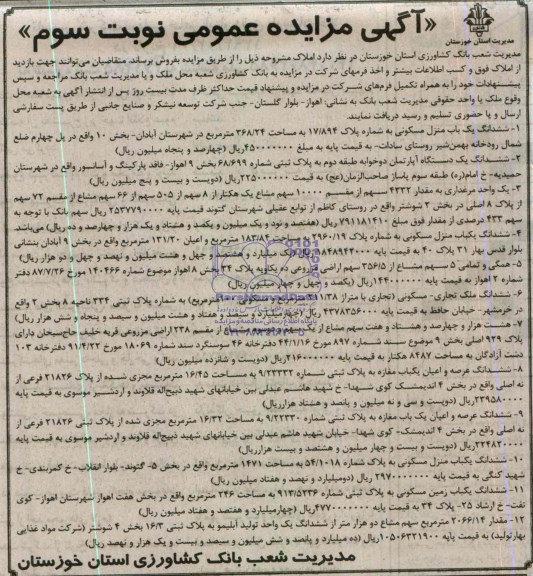 «آگهی مزایده عمومی نوبت سوم»
مدیریت استان خوزستان
مدیریت شعب بانک کشاورزی استان خوزستان در نظر دارد املاک مشروحه ذیل را از طریق مزایده بفروش برساند. متقاضیان می‌توانند جهت بازدید
از املاک فوق و کسب اطلاعات بیشتر و اخذ فرمهای شرکت در مزایده به بانک کشاورزی شعبه محل ملک و یا مدیریت شعب بانک مراجعه و سپس
پیشنهادات خود را به همراه تکمیل فرم‌های شرکت در مزایده و پیشنهاد قیمت حداکثر ظرف مدت بیست روز پس از انتشار آگهی به شعبه محل
وقوع ملک یا واحد حقوقی مدیریت شعب بانک به نشانی: اهواز- بلوار گلستان- جنب شرکت توسعه نیشکر و صنایع جانبی از طریق پست سفارشی
ارسال و یا حضوری تسلیم و رسید دریافت نمایند.
۱- ششدانگ یک باب منزل مسکونی به شماره پلاک ۱۷/۸۹۴ به مساحت ۳۶۸/۲۴ مترمربع در شهرستان آبادان- بخش ۱۰ واقع در پل چهارم ضلع
شمال رودخانه بهمن‌شیر روستای سادات- به قیمت پایه به مبلغ ۴۵۰۰۰۰۰۰۰ ریال (چهارصد و پنجاه میلیون ریال)
۲- ششدانگ یک دستگاه آپارتمان دوخوابه طبقه دوم به پلاک ثبتی شماره ۶۸/۶۹۹ بخش ۹ اهواز- فاقد پارکینگ و آسانسور واقع در شهرستان
حمیدیه- خ امام(ره) طبقه سوم پاساژ صاحب‌الزمان(عج) به قیمت ۲۲۵۰۰۰۰۰۰ ریال (دویست و بیست و پنج میلیون ریال)
۳- یک واحد مرغداری به مقدار ۴۳۲۲ سهم از مقسیم ۱۰۰۰۰ سهم مشاع یک هکتار از ۸ سهم از ۵۰۵ سهم از ۶۶ سهم مشاع از مقسم ۷۲ سهم
از پلاک ۸ اصلی در بخش ۳ شوشتر واقع در روستای کاظم از توابع عقیلی شهرستان گتوند قیمت پایه ۲۵۳۷۷۹۰۰۰۰ ریال سهم بانک با توجه به
سهم ۴۳۳ درصدی از مقدار فوق مبلغ ۷۹۱۱۸۱۴۱۰ ریال (هفتصد و نود و یک میلیون و یکصد و هشتاد و یک هزار و چهارصد و ده ریال) می‌باشد
۴- ششدانگ یکباب منزل مسکونی به شماره پلاک ۲۹۶۰/۱۹ به مساحت ۱۸۳/۸۴ مترمربع و اعیان ۱۳۱/۲۰ مترمربع واقع در بخش ۹ آبادان بنشانی
بلوار قدس بهار ۲۱ پلاک ۴۰ به قیمت پایه ریال (یک میلیارد و هشتصد و چهل و هشت میلیون و نهصد و چهل و دو هزار ریال)
۵- همگی و تمامی ۵ سهم مشاع از ۳۵۶/۵ سهم اراضی مزروعی ده یکاویه پلاک ۳۴ بخش ۸ اهواز موضوع شماره ۱۴۰۴۶۶ مورخ ۸۷/۷/۲۶ دفتر
شماره ۲ اهواز به قیمت پایه ۱۴۴۰۰۰۰۰۰ ریال (یکصد و چهل و چهار میلیون ریال)
۶- ششدانگ ملک تجاری- مسکونی (تجاری با متراژ ۳۱۱/۳۸ مترمربع) به شماره پلاک ثبتی ۳۳۴ ناحیه ۸ بخش ۲ واقع
در خرمشهر- خیابان حافظ به قیمت پایه ۴۳۷۸۳۵۶۰۰۰ ریال (چهار میلیارد و سیصد و هفتاد و هشت میلیون و سیصد و پنجاه و شش هزار ریال)
۷- هشت هزار و چهارصد و هشتاد و هفت سهم مشاع از مقسم ۲۳۸ اراضی مزروعی قریه خلیف حاج‌سیحان دارای
پلاک ۹۲۹ اصلی بخش ۹ موضوع سند شماره ۸۹۷ مورخ ۴۴/۱/۱۶ دفترخانه ۴۶ سوسنگرد سند شماره ۱۸۰۶۹ مورخ ۹۱/۴/۲۲ دفترخانه ۱۰۳
دشت آزادگان به مساحت ۸۴۸۷ هکتار به قیمت پایه ۲۱۶۰۰۰۰۰۰ ریال (دویست و شانزده میلیون ریال)
۸- ششدانگ عرصه و اعیان یکباب مغازه به پلاک ثبتی شماره ۹/۲۲۳۳۲ به مساحت ۱۶/۴۵ مترمربع مجزی شده از پلاک ۲۱۸۲۶ فرعی از
نه اصلی واقع در بخش ۴ اندیمشک کوی شهدا- خ شهید هاشم عبدلی بین خیابانهای شهید ذبیح‌اله قلاوند و اردشیر موسوی به قیمت پایه
۲۳۹۵۸۰۰۰۰ ریال (دویست و سی و نه میلیون و پانصد و هشتاد هزار ریال)
۹- ششدانگ عرصه و اعیان یک باب مغازه به پلاک ثبتی شماره ۹/۲۲۳۳۰ به مساحت ۱۶/۳۲ مترمربع مجزی شده از پلاک ثبتی ۲۱۸۲۶ فرعی از
نه اصلی واقع در بخش ۴ اندیمشک- کوی شهدا- خیابان شهید هاشم عبدلی بین خیابانهای شهید ذبیح‌اله قلاوند و اردشیر موسوی به قیمت پایه
۲۲۴۸۲۰۰۰۰ ریال (دویست و بیست و چهار میلیون و هشتصد و بیست هزار ریال)
۱۰- ششدانگ یکباب منزل مسکونی به پلاک شماره ۵۴/۱۰۱۸ به مساحت ۱۴۷۱ مترمربع واقع در بخش ۵- گتوند- بلوار انقلاب- خ کمربندی- خ
شهید گنگی به قیمت پایه ۲۹۷۰۰۰۰۰۰۰ ریال (دومیلیارد و نهصد و هفتاد میلیون ریال)
۱۱- ششدانگ یکباب زمین مسکونی به پلاک ثبتی شماره ۹۱۳/۵۲۳۶ به مساحت ۲۴۶ مترمربع واقع در بخش هفت اهواز شهرستان اهواز- کوی
نفت- خ ارشاد ۲۵- پلاک ۳۴ به قیمت پایه ۴۷۷۰۰۰۰۰۰۰ ریال (چهارمیلیارد و هفتصد و هفتاد میلیون ریال)
۱۲- مقدار ۲۰۶۶/۱۴ مترمربع سهم مشاع دو هزار متر از ششدانگ یک واحد تولید آبلیمو به پلاک ثبتی ۱۶/۳ بخش ۴ شوشتر (شرکت مواد غذایی
بهارتولید) به قیمت پایه ۱۰۵۰۶۳۲۱۹۰۰ ریال (ده میلیارد و پانصد و شش میلیون و سیصد و بیست و یک هزار و نهصد ریال).
مدیریت شعب بانک کشاورزی استان خوزستان